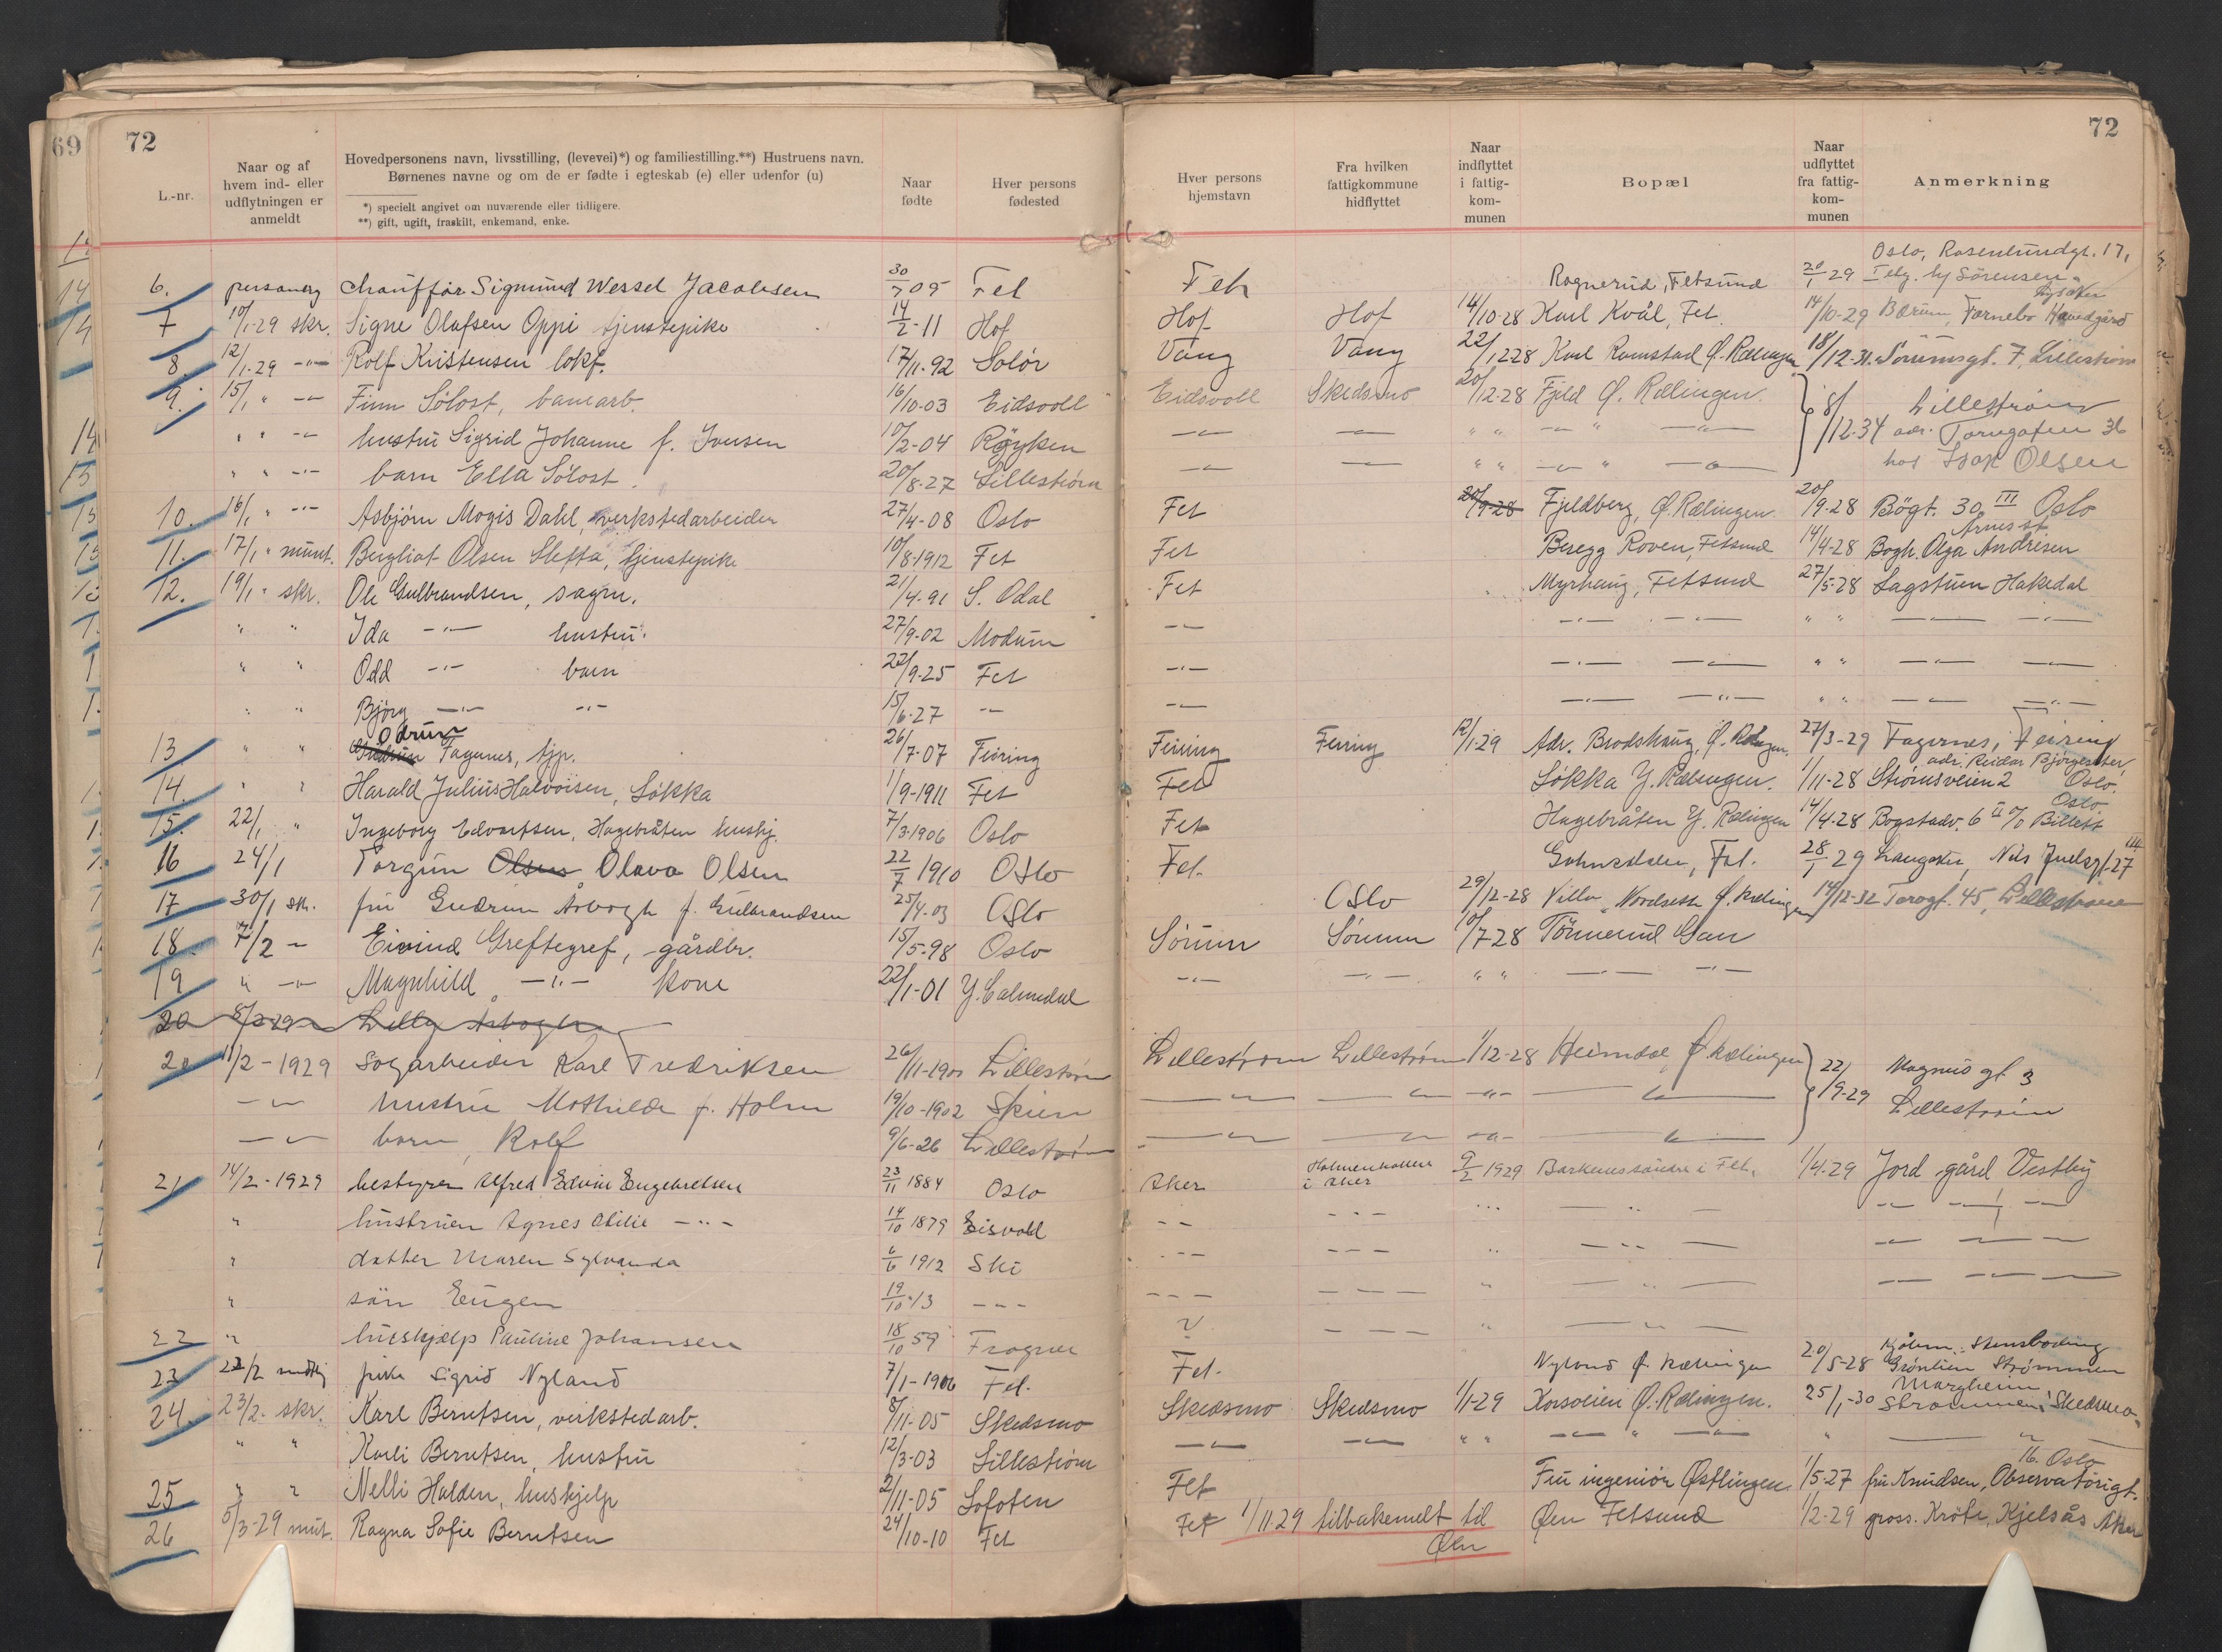 69
72
72
L.-nr.
Naar og af hvem ind- eller udflytningen er anmeldt
Hovedpersonens navn, livsstilling, (levevei)*) og familiestilling.**) Hustruens navn.
Børnenes navne og om de er fødte i egteskab (e) eller udenfor (u)
*) specielt angivet om nuværende eller tidligere.
**) gift, ugift, fraskilt, enkemand, enke.
Naar fødte
Hver persons fødested
Hver persons hjemstavn
Fra hvilken fattigkommune hidflyttet
Naar indflyttet i fattig-kom-munen
Bopæl
Naar udflyttet fra fattig-kom-munen
Anmerkning
Oslo, Rosenlundgt. 17,
6. Chauffør Sigmund Wessel Jacobsen 30/7 05 Fet Fet Rognerud, Fetsund 20/1 29
7 10/1-29 skr. Signe Olafsen Oppi tjenestepike 14/2-11 Hof Hof Hof 14/10-28 Karl Kvål, Fet. 14/10-29 Bærum, Fornebo
8. 12/1-29 -"- Rolf Kristensen lokf. 17/11-92 Solör Vang Vang 22/12 28 Karl Ramstad Ø. Rælingen 18/12-31. Sörumsgt. 7, Lillestrøm
9. 15/1 " -"- Finn Sölost, banearb. 16/10-03 Eidsvoll Eidsvoll Skedsmo 20/12-28 Fjeld Ø. Rælingen. 18/12-34 Lillestrøm
" " -"- hustru Sigrid Johanne f. 10/2-04 Røyken -"- -"- " " -"- " -"- adr. 36
" " -"- barn Ella Sölost. 20/8-27 Lillestrøm -"- -"- " " -"- " -"- hos Isak Olsen
10. 16/1 " -"- Asbjørn Mogis Dahl, verkstedarbeider 27/4-08 Oslo Fet 20/9-28 Fjeldberg, Ø. Rælingen 20/9-28 Bögt. 30 III Oslo
11. 17/1 " munt. Bergliot Olsen Sletta, tjenestepike 10/8-1912 Fet Fet Roven, Fetsund 14/4-28 Olga Andresen
12. 19/1 " skr. Ole Gulbrandsen, sagm. 21/4-91 S. Odal Fet Myrhaug, Fetsund 27/5-28 Lagstuen Hakedal
" " Ida -"- hustru. 27/9-02 Modum -"- -"- -"- " " -"- -"-
" " Odd -"- barn 22/9-25 Fet -"- -"- -"- " " -"- -"-
" " Bjørg -"- -"- 15/6-27 -"- -"- -"- -"- " " -"- -"-
Odrun
13. " " Fagernes, tjp. 26/7-07 Feiring Feiring Feiring 12/1-29 Adr. Brodshaug, Ø. Rælingen. 27/3-29 Fagernes, Feiring
adr. Reidar Bjørgesæter,
14. " " Harald Julius Halvorsen, Løkka 1/9-1911 Fet Fet Løkka Y. Rælingen. 1/11-28 Strømsveien 2 Oslo.
Oslo
15. 22/1 " Ingeborg Edvartsen, Hagebråten hushj. 7/3-1906 Oslo Fet Hagebråten Y. Rælingen 14/4-28 Bogstadv. 6 II
16 24/1 Torgun Olsen Olava Olsen 22/7 1910 Oslo Fet. Fet. 28/1 29 Nils Juelsgt. 27
17 30/1 sk. fru Gudrun Åsbogh f. Gulbrandsen 25/4-03 Oslo Oslo 29/12-28 Villa Nordseth Ø. Rælingen 14/12-32 Torvgt. 45, Lillestrøm
18. 7/2 - Eivind Greftegref, gårdbr. 15/5-98 Oslo Sørum Sørum 10/7 28 Tönnerud Gan
19 " -"- Magnhild -"- kone 22/1-01 -"- -"- " " -"- -"-
20 8/2 29 Lilly Åsbogh
20 11/2-1929 Sagarbeider Karl Fredriksen 26/11-1900 Lillestrøm Lillestrøm Lillestrøm 1/12-28 Heimdal Ø. Rælingen 22/9-29 Magnus gt. 3
-"- hustru Mathilde f. Holm 19/10-1902 Skien -"- -"- -"- -"- Lillestrøm
-"- barn Rolf 9/6-26 Lillestrøm -"- -"- -"- -"-
21 14/2-1929 bestyrer Alfred Edvin Engebretsen 23/11 1884 Oslo Aker Holmenkollen i Aker 9/2 1929 Barkenes søndre i Fet. 1/4-29 Jord gård Vestby
" hustruen Agnes Otilie -"- 14/10 1879 Eisvold
" datter Maren Sylvanda 6/6 1912 Ski
" sön Eugen 19/10 13 ---
22 " huskjelp Pauline Johansen 18/10 59 Frogner
23 22/2 mdtlig pike Sigrid Nyland 7/1-1906 Fet. Fet. Nyland Ø. Rælingen 20/5-28 Grønlien Strømmen
24. 23/2. skr. Karl Berntsen, verkstedarb. 8/11-05 Skedsmo Skedsmo Skedsmo 1/1-29 Korsveien Ø. Rælingen. 25/1-30 Margheim Strømmen, Skedsmo
" " Karli Berntsen, hustru 12/3-03 Lillestrøm -"- -"- " " -"- " -"-
16. Oslo
25 " " Nelli Halden, huskjelp 2/11-05 Lofoten Fet Fru ingeniør Østlingen. 1/5-27 fru Knudsen, Observatorigt.
26 5/3-29 mut. Ragna Sofie Berntsen 24/10-10 Fet Fet 1/11 29 tilbakemelt til Øen Øen Fetsund 1/2-29 gross. Kröte, Kjelsås Aker